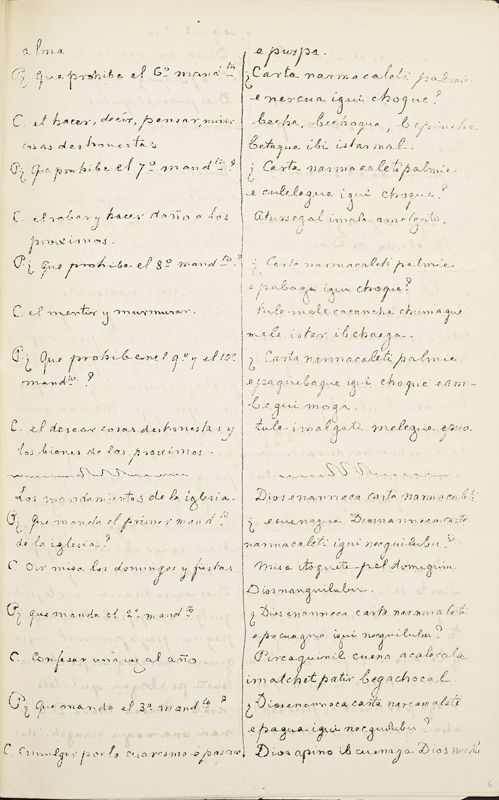 alma
P. ¿ que prohibe el 6º mandto
C. el hacer, decir, pensar, mirar
cosas deshonestas
P. ¿ Que prohibe el 7º mandto ?
C. el robar y hacer daño a los
proximos.
P. ¿ que prohibe el 8º mandto ?
C. el mentir y murmurar.
P. ¿ Que prohiben el 9º y el 10º
mandto ?
C. el desear cosas deshonestas y
los bienes de los proximos.
Los mandamientos de la iglesia.
P. ¿ que manda el primer mandto
de la iglesia ?
C. Oir misa los domingos y fiestas
P. ¿ que manda el 2º mandto
C. Confesar una vez al año.
P. ¿ Que manda el 3º mandto ?
C. Comulgar por la cuaresma ó pascua
e purpa.
¿ Carta narmacaleti palmie
e nercua igui choque ?
beche, bechogua, bepinche
betagua ibi istarmal.
¿ Carta narmacaleti palmie
e culelegue igui choque ?
Aturregal imala amalgata.
¿ Carta narmacaleti palmie
e pabaga igui choque ?
tule mele cacanche chunmague
mele istar ibchaega.
¿ Carta narmacaleti palmie
e paquebague igui choque e am-
begui moga.
tule imalgati melegue epio.
Dios enanneca carta narmacaleti
¿ ecuenagua Diosnanneca carta
narmacaleti igui nocguilubu ?
Misa itoguete pel domigun
Diosnanguilubu.
¿ Dios enanneca carta narmacaleti
e pocuagua igui nocguilubu ?
Pircaguinit cuena acalocala
imalchet patir begachocal
¿ Dios enanneca carta narcamaleti
e pagua igui nocguilubu ?
Dios apino ibcuenaga Dios